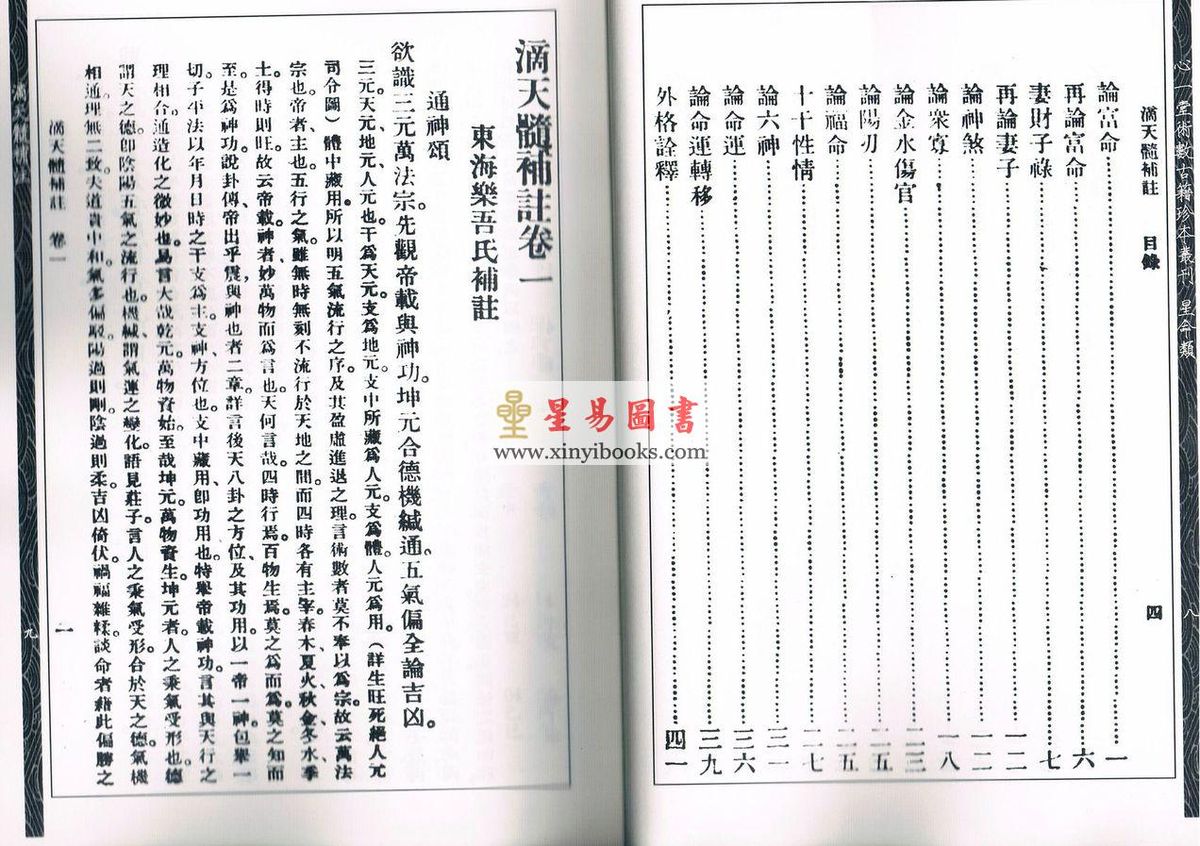 心一堂術數古籍珍本叢刊 星命類
八
滴天髓補註 目錄
四
論富命 一
再論富命 六
妻財子祿 七
再論妻子 一二
論神煞 一二
論衆尊 一八
論金水傷官 二三
論陽刃 二五
論福命 二五
十干性情 二七
論六神 三一
論命運 三六
論命運轉移 三九
外格詮釋 四一
星易圖書
www.xinyibooks.com
滴天髓補註卷一
東海樂吾氏補註
通神頌
欲識三元萬法宗。先觀帝載與神功。坤元合德機緘通。五氣偏全論吉凶。
三元天元、地元、人元也。干爲天元、支爲地元、支中所藏爲人元。支爲體、人元爲用。(詳生旺死絕人元
司令圖)體中藏用。所以明五氣流行之序、及其盈虛進退之理。言術數者莫不奉以爲宗。故云萬法
宗也。帝者、主也。五行之氣、雖無時無刻不流行於天地之間、而四時各有主宰。春木、夏火、秋金、冬水、季
土、得時則旺。故云帝載。神者妙萬物而爲言也。天何言哉。四時行焉。百物生焉。莫之爲而爲。莫之知而
至。是爲神功。說卦傳、帝出乎震、與神也者二章、詳言後天八卦之方位及其功用。以一帝一神。包舉一
切。子平法以年月日時之干支爲主。支神方位也。支中藏用、卽功用也。特舉帝載神功。言其與天行之
理相合。通造化之微妙也。易言大哉乾元。萬物資始。至哉坤元。萬物資生。坤元者。人之秉氣受形也。德
謂天之德。卽陰陽五氣之流行也。機緘、謂氣運之變化。語見莊子。言人之秉氣受形。合於天之德。氣機
相通。理無二致。夫道貴中和。氣多偏駁。陽過則剛。陰過則柔。吉凶倚伏。禍福雜糅。談命者藉此偏勝之
滴天髓補註 卷一
一
九